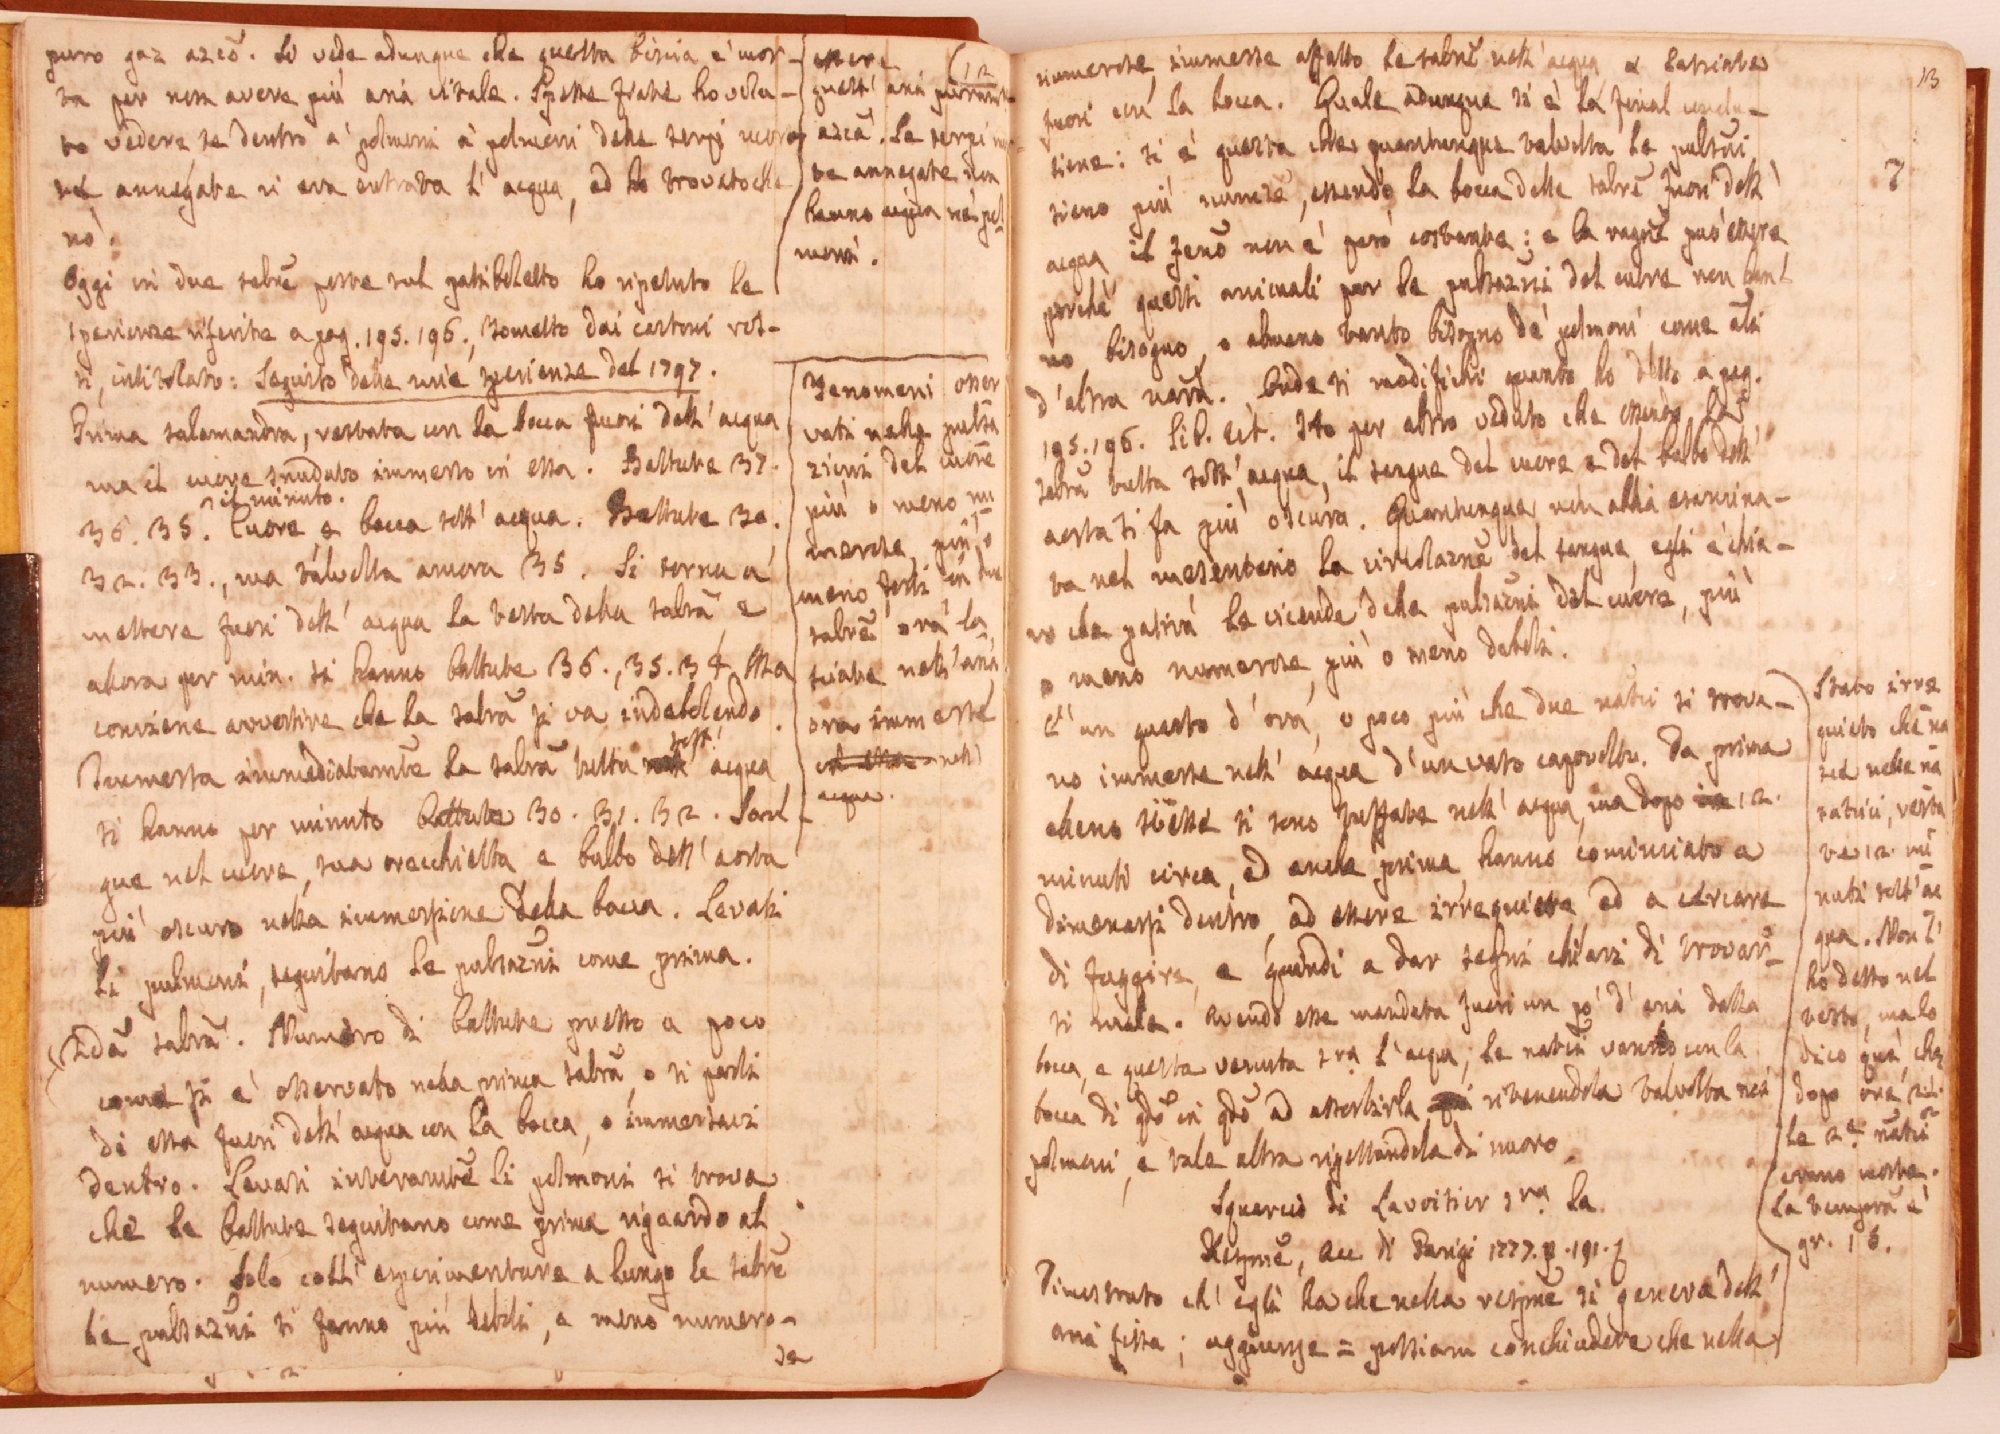 puro gaz azco. Si vede adunque che questa biscia è mor-
ta per non avere più aria vitale. Spesse fiate ho volu-
to vedere se dentro a' polmoni a' polmoni delle serpi morte
annegate vi era entrata l'acqua, ed ho trovato che
nò.
Oggi in due salre poste sul patiboletto ho ripetuto le
sperienze riferite a pag. 195. 196., Zometto dai cartoni ros-
si, intitolato: Seguito delle mie sperienze del 1797.
Prima salamandra, restata con la bocca fuori dell'acqua
ma il cuore snudato immerso in essa. Battute 37.
il minuto.
36. 35. Cuore e bocca sott'acqua. Battute 30.
32. 33., ma talvolta ancora 35. Si torna a
mettere fuori dell'acqua la testa della salra e
allora per min. si hanno battute 36., 35. 34.
conviene avvertire che la salra si va indebolendo.
Immersa immediatamte la salra tutta sott' acqua
si hanno per minuto battute 30. 31. 32. San-
gue nel cuore, sua orecchietta e bulbo dell'aorta
più oscuro nella immersione della bocca. Levati
li pulmoni, seguitano le pulsazni come prima.
2da salra. Numero di battute presso a poco
come si è osservato nella prima salra, o si parli
di essa fuori dell'acqua con la bocca, o immersavi
dentro. Levati interamte li polmoni si trova
che le battute seguitano come prima riguardo al
numero. Solo coll'esperimentare a lungo le salre
le pulsazni si fanno più deboli, e meno numero-
se
(12
essere
quest' aria puramte
azca. Le serpi mor-
te annegate non
hanno acqua ne' pol-
moni.
Fenomeni osser
vati nelle pulsa
zioni del cuore
più o meno nu
merose, più o
meno forti in due
salre ora la
sciate nell'aria
ora immerse
in essa nell'
acqua.
13
7
numerose, immerse affatto le salre nell'acqua, e lasciate
fuori con la bocca. Quale adunque si è la final conclu-
sione: si è questa che quantunque talvolta le pulsni
sieno più numse, essendo la bocca delle salre fuori dell'
acqua il feno non è però costante: e la ragne può essere
perchè questi animali per le pulsazni del cuore non han-
no bisogno, o almeno tanto bisogno de' polmoni come altri
d'altra nara. Onde si modifichi quanto ho detto a pag.
195. 196. lib. cit. Ho per altro veduto che essendo la
salra tutta sott'acqua, il sangue del cuore e del bulbo dell'
aorta si fa più oscuro. Quantunque non abbia esamina-
ta nel mesenterio la circolazne del sangue, egli è chia-
ro che patirà le vicende delle pulsazni del cuore, più
o meno numerose, più o meno deboli.
È un quarto d'ora, o poco più che due natrici si trova-
no immerse nell'acqua d'un vaso capovolto. Da prima
elleno stesse si sono tuffate nell'acqua, ma dopo 12.
minuti circa, ed anche prima hanno cominciato a
dimenarsi dentro, ad essere irrequiete ed a cercare
di fuggire, e quindi a dar segni chiari di trovar-
si male. Avendo esse mandata fuori un pò d'aria dalla
bocca, e questa venuta sra l'acqua, le natrici vanno con la
bocca di qdo in qdo ad assorbirla ritenendola talvolta nei
polmoni, e tale altra rigettandola di nuovo.
Squarcio di Lavoisier sra la
Respne, Acc. di Parigi 1777. p. 191.
Dimostrato ch'egli ha che nella respne si genera dell'
aria fissa; aggiunge = possiam conchiudere che nella
Stato irre
quieto che na
sce nelle na
tatrici, resta
te 12 mi
nuti sott'ac
qua. Non l'
ho detto nel
testo, ma lo
dico quà, che
dopo ore
le 2e natrici
erano morte.
La tempra è
gr. 16.